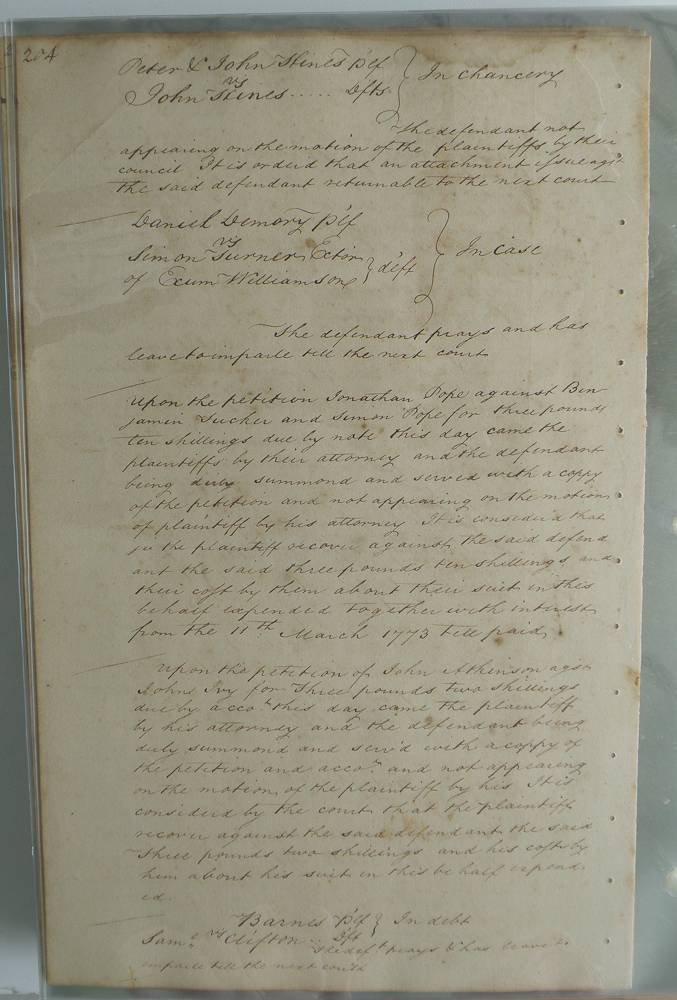 204
Peter & John Hines plf } In Chancery
vs
John Hines ..... Dfts
The defendant not
appearing on the motion of the plaintiffs by their
council It is orderd that an attachment issue agst
the said defendant returnable to the next court
Daniel Demory plf
vs
Simon Turner Extor } deft } In Case
of Exum Williamson
The defendant prays and has
leave to imparle till the next court
Upon the petition Jonathan Pope against Ben-
jamin Tucker and Simon Pope for three pounds
ten shillings due by note this day came the
plaintiffs by their attorney and the defendant
being duly summond and served with a coppy
of the petition and not appearing on the motion
of plaintiff by his attorney It is considerd that
the plaintiff recover against the said defend
ant the said three pounds ten shillings and
their cost by them about their suit in this
behalf expended together with interest
from the 11th March 1773 till paid
Upon the petition of John Atkinson agst
Johns Ivy for Three pounds two shillings
due by acco.t this day came the plaintiff
by his attorney and the defendant being
duly summond and serv'd with a coppy of
the petition and acco.t and not appearing
on the motion of the plaintiff by his It is
considerd by the court that the plaintiff
recover against the said defendant the said
Three pounds two shillings and his costs by
him about his suit in this behalf expend
ed.
Barnes Plf } In debt
vs
Sam.l Clifton .. Dft
The deft prays & has leave to
imparle till the next court